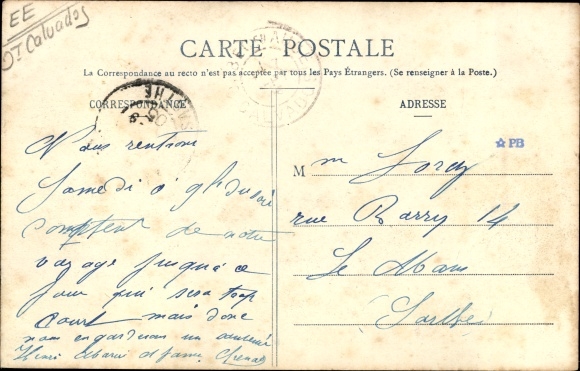 EE
Dt Calvados
CARTE POSTALE
La Correspondance au recto n'est pas acceptée par tous les Pays Étrangers. (Se renseigner à la Poste.)
CORRESPONDANCE
SARTHE
CALVADOS
Nous rentrons
Samedi à 9h du soir
comptent de notre
voyage jusqu'à ce
jour qui sera trop
court mais dont
nous en garderons un
Henri Marie et
ADRESSE
PB
M
rue Barry 14
Le Mans
Sarthe